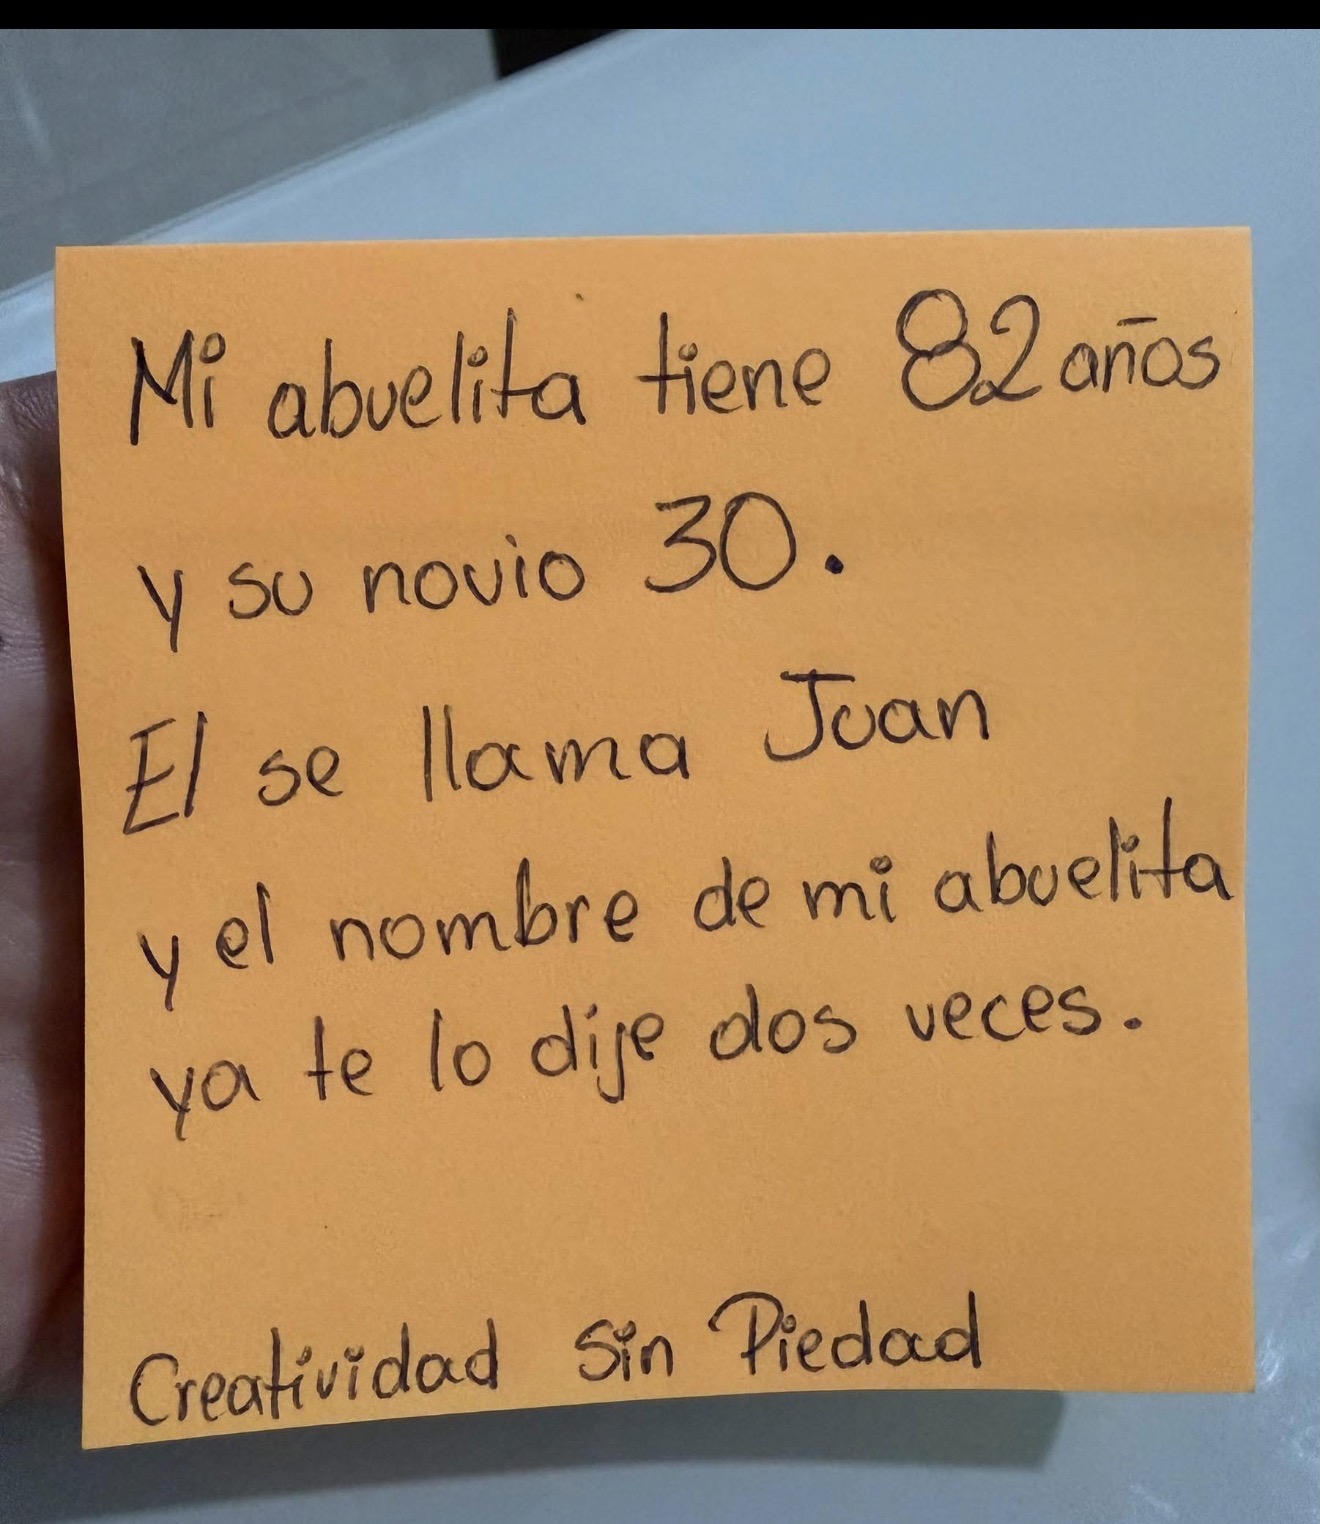 Mi abuelita tiene 82 años
y su novio 30.
El se llama Juan
y el nombre de mi abuelita
ya te lo dije dos veces.
Creatividad Sin Piedad